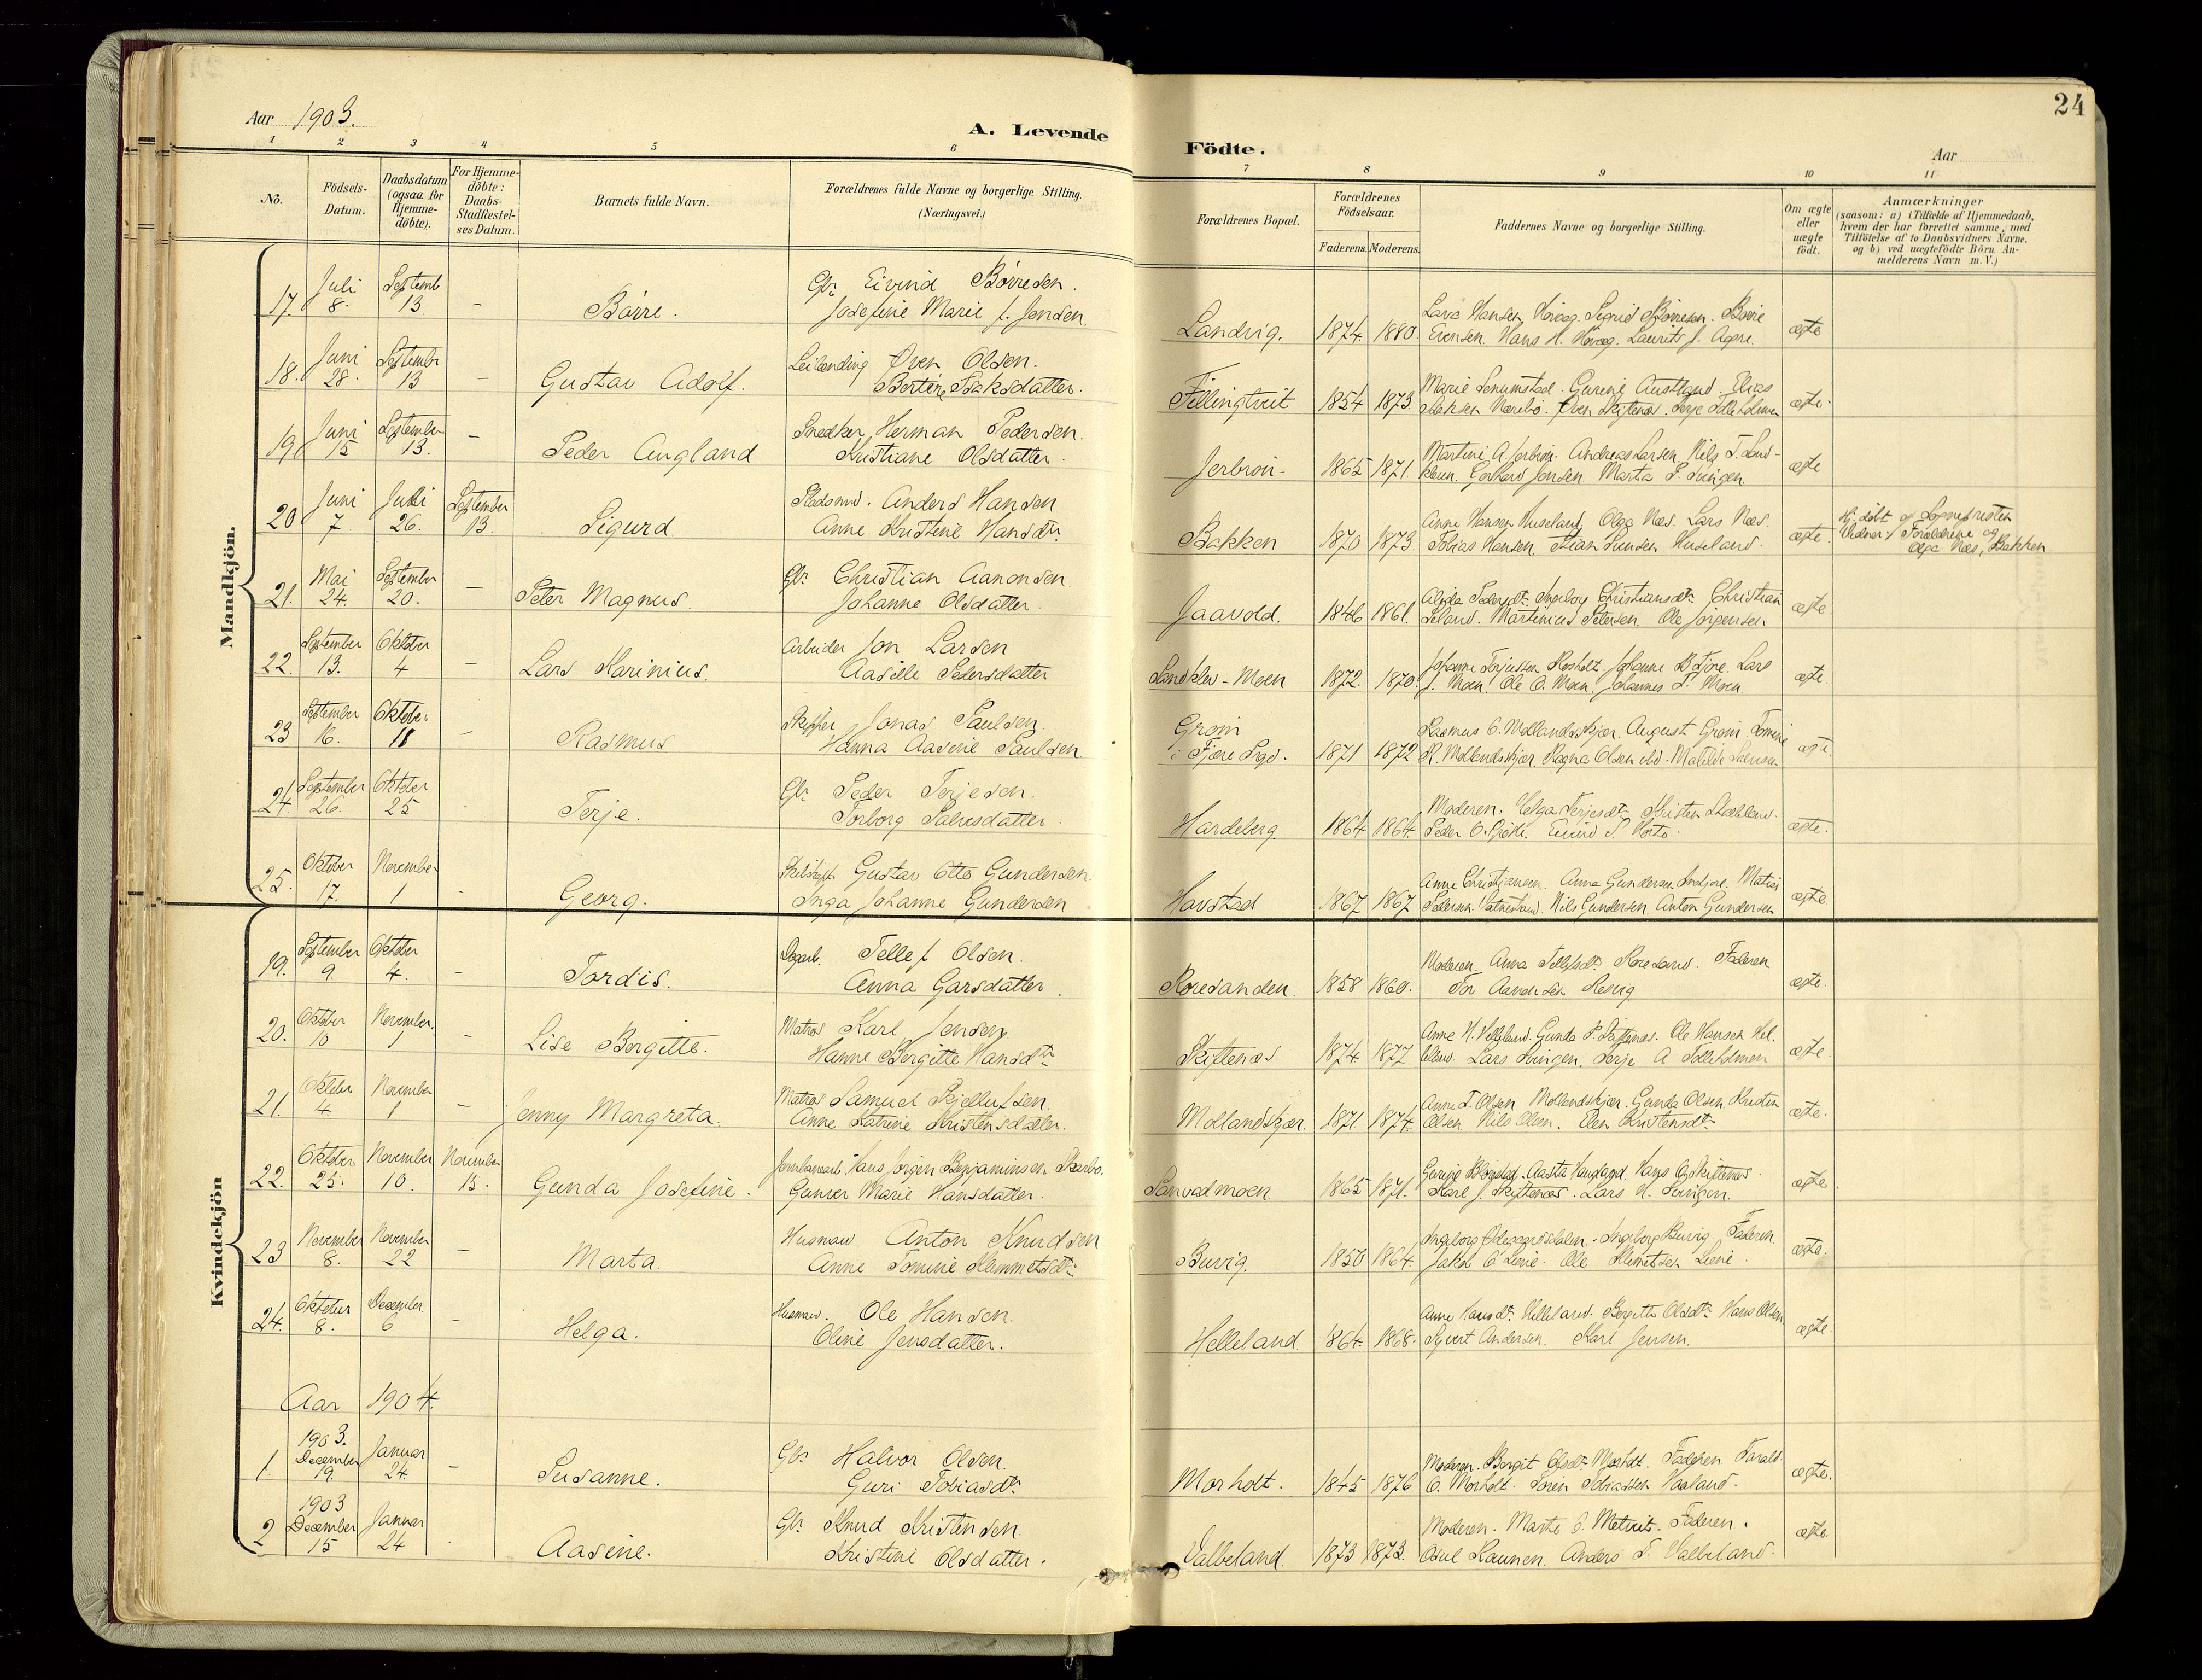 24
Aar 1903.
A. Levende Födte.
Aar
1 2 3 4 5 6 7 8 9 10 11
No.
Födsels-Datum.
Daabsdatum (ogsaa for Hjemme-döbte).
For Hjemme-döbte: Daabs-Stadfæstel-ses Datum.
Barnets fulde Navn.
Forældrenes fulde Navne og borgerlige Stilling.
(Næringsvei.)
Forældrenes Bopæl.
Forældrenes Födselsaar.
Faderens. Moderens.
Faddernes Navne og borgerlige Stilling.
Om ægte eller uægte födt.
Anmærkninger
(saasom: a) i Tilfælde af Hjemmedaab,
hvem der har forrettet samme, med
Tilföielse af to Daabsvidners Navne,
og b) ved uægtefödte Börn An-
melderens Navn m. V.)
Mandkjön.
17. Juli 8. Septemb 13 – Børre. Gbr. Eivind Børresen.
Josefine Marie f. Jensen. Landvig. 1874 1880 Lars Hansen Høvaag. Sigrid Børresen. Børre
Evensen. Hans H. Høvaag. Laurits J. Agre. ægte
18. Juni 28. Septembr 13 – Gustav Adolf. Leilænding Øven Olsen.
Bertine Isaksdatter. Fillingtveit 1854 1873. Marie Senumstad. Gurine Austland. Elias
Isaksen Nærebø. Øven Skiftenes. Terje Tølleholmen ægte
19 Juni 15 September 13. – Peder Augland Snedker Herman Pedersen.
Kristiane Olsdatter. Jerbron 1865 1871. Martine A Jerbron. Andreas Larsen. Nils T. Land-
Gerhard Jensen Marta P. Svingen. ægte
20 Juni 7. Juli 26. September 13. Sigurd. Anders Hansen
Anne Kristine Hansdtr. Bakken 1870 1873. Anne Hansen Huseland, Olga Næs. Lars Næs.
Tobias Hansen. Huseland. ægte. Hj. döbt af Sognepresten
Vidner: Forældrene og
Olga Næs, Bakken
21. Mai 24. September 20. – Peter Magnus. Gbr. Christian Aanonsen.
Johanne Olsdatter. Jaavold. 1846 1861. Alida Pedersdtr. Ingeborg Christiansdtr. Christian
Martinius Petersen. Ole Jørgensen ægte
22. September 13. Oktober 4 – Lars Karinius. Arbeider Jon Larsen
Aasille Pedersdatter Landklev-Moen 1872. 1870. Johanne Terjesen Rosholt. Johanne B. Fjære. Lars
J. Moen. Ole O. Moen. Johannes T. Moen ægte.
23 September 16. Oktober 11 – Rasmus Skipper Jonas Paulsen.
Hanna Aasine Paulsen Grøm
i Fjære Sogn. 1871 1872 Rasmus O. Mollandskjær. August Grøm. Tomine
R. Mollandskjær. Ragna Olsen ibd. Matilde ægte.
24. September 26. Oktober 25 Terje. Gbr. Peder Terjesen.
Torborg Salvesdatter. Hardeberg. 1864 1864. Moderen. Helga Terjesdtr.
Peder O. ægte.
25. Oktober 17. November 1 Georg. Gustav Otto Gundersen.
Inga Johanne Gundersen Havstad 1867 1867 Anne Christjansen. Anna Gundersen Matias
Pedersen Nils Gundersen. Anton Gundersen ægte
Kvindekjön
19. September 9. Oktober 4. – Tordis. Dagarb. Tellef Olsen.
Anna Garsdatter Roresanden. 1858 1860. Moderen. Anna Tellefsdtr. Roresand. Faderen
Tor Aanonsen ægte.
20. Oktober 10 November. 1 – Lise Bergitte. Matros Karl Jensen
Hanne Bergitte Hansdtr Skiftenæs 1874 1877 Anne H. Helleland. Gunda P. Skiftenæs. Ole Hansen Hel-
leland. Lars Svingen. Terje A Tølleholmen ægte.
21. Oktober 4. November 1 – Jenny Margreta. Matros Samuel Kjellufsen.
Anne Katrine Kristensdatter. Mollandskjær. 1871. 1874. Anne T. Olsen Mollandskjær. Gunda Olsen. Kristen
Olsen. Nils Olsen. Elen Kristensdtr. ægte.
22. Oktober 25. November 10. November 15. Gunda Josefine. Jernbanearb. Hans Jørgen Benjaminsen Skarbo.
Gunvor Marie Hansdatter. Sanvadmoen 1865 1871. Aasta Haugland. Hans O. Skiftenæs.
Karl J. Skiftenæs. Lars H. Svingen. ægte
23 November 8. November 22 – Marta. Husmand Anton Knudsen
Anne Tomine Klemmetsdtr. Buvig. 1850 1864. Ingeborg Ødegaardsdalen. Ingeborg Buvig. Faderen
Jakob O Lunie. Ole Klemetsen Lunie. ægte.
24. Oktober 8. December 6 – Helga. Husmand. Ole Hansen.
Oline Jensdatter. Helleland. 1864. 1868. Anne Hansdtr. Helleland. Bergitte Olsdtr. Hans Olsen
Syvert Andersen. Karl Jensen. ægte
Aar 1904.
1. 1903. December 19. Januar 24 – Susanne. Gbr. Halvor Olsen.
Guri Tobiasdtr. Morholt. 1845 1876 Moderen. Bergit Olsdtr. Morholt. Faderen. Tarald
O. Morholt. Søren Tobiassen Vaaland. ægte.
2 1903 December 15 Januar 24 Aasine. Gbr. Knud Kristensen.
Kristine Olsdatter. Valbeland. 1873 1873. Moderen. Marte O. Metveit. Faderen.
Osul Haunen. Anders T. Valbeland. ægte